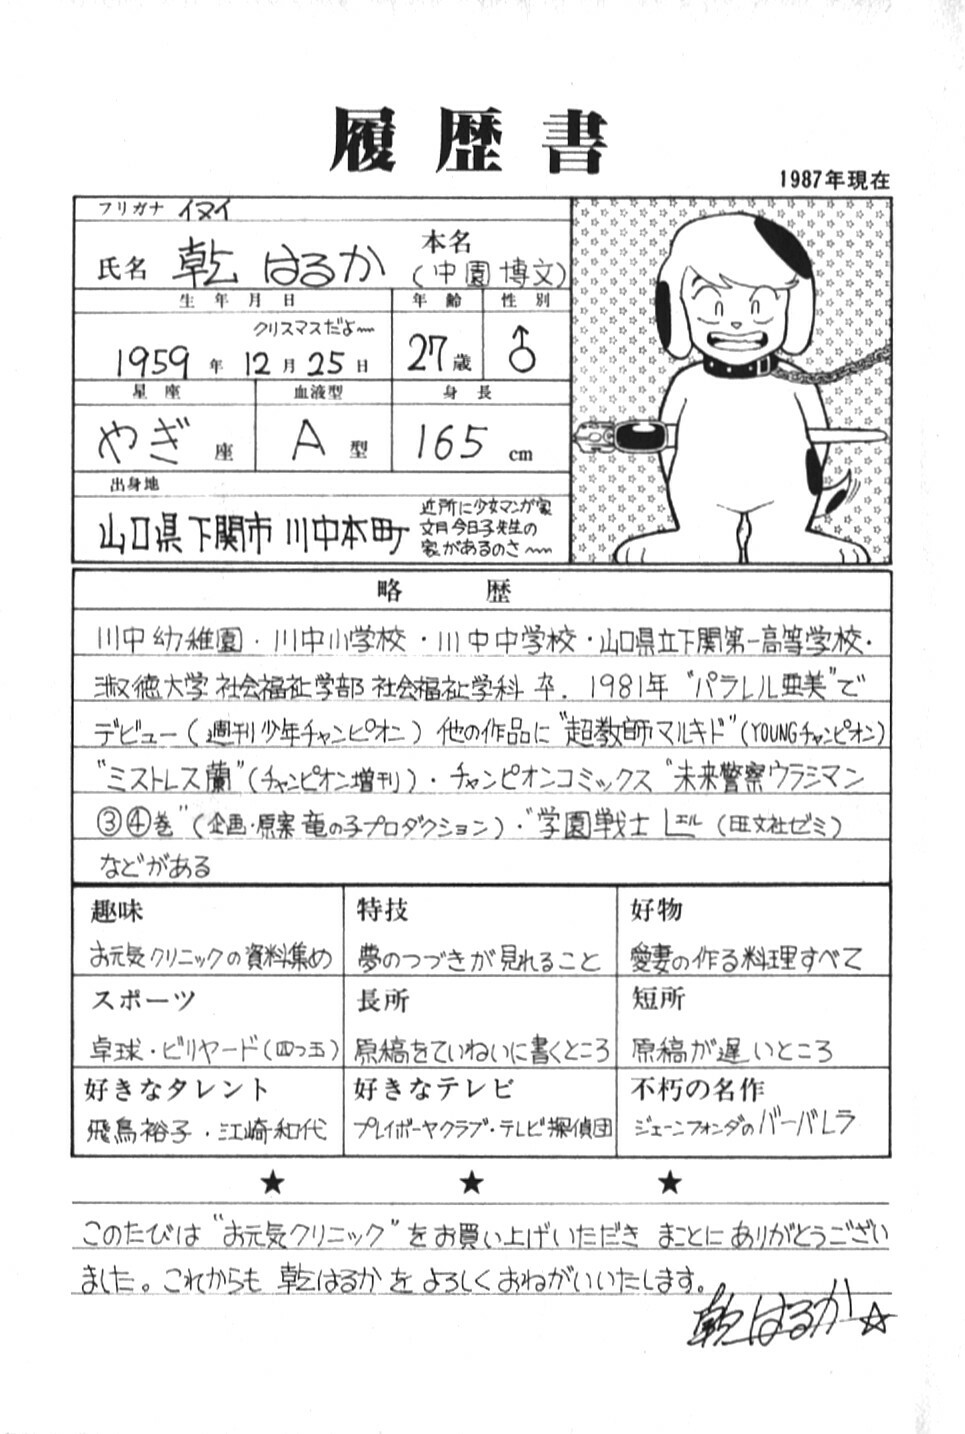 履歴書
1987年現在
フリガナ イヌイ
氏名 乾 はるか 本名(中園博文)
生年月日 年齢 性別
クリスマスだよ〜
1959年 12月25日 27歳 ♂
星座 血液型 身長
やぎ座 A型 165cm
出身地
山口県下関市川中本町
近所に少女マンガ家
文月今日子先生の
家があるのさ〜
略歴
川中幼稚園・川中小学校・川中中学校・山口県立下関第一高等学校・
淑徳大学社会福祉学部社会福祉学科卒. 1981年 “パラレル亜美”で
デビュー(週刊少年チャンピオン)他の作品に“超教師マルキド”(YOUNGチャンピオン)
“ミストレス蘭”(チャンピオン増刊)・チャンピオンコミックス“未来警察ウラシマン
③④巻”(企画・原案 竜の子プロダクション)・“学園戦士L エル(旺文社ゼミ)
などがある
趣味 特技 好物
お元気クリニックの資料集め 夢のつづきが見れること 愛妻の作る料理すべて
スポーツ 長所 短所
卓球・ビリヤード(四つ玉) 原稿をていねいに書くところ 原稿が遅いところ
好きなタレント 好きなテレビ 不朽の名作
飛鳥裕子・江崎和代 プレイボーヤクラブ・テレビ探偵団 ジェーンフォンダのバーバレラ
★ ★ ★
このたびは“お元気クリニック”をお買い上げいただき まことにありがとうござい
ました。これからも 乾はるかをよろしくおねがいいたします。
乾はるか☆